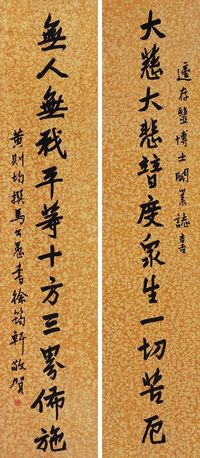 博士開業誌喜
大慈大悲普度衆生一切苦厄
無人無我平等十方三界佈施
黃則均撰馬公愚書徐筠軒敬賀